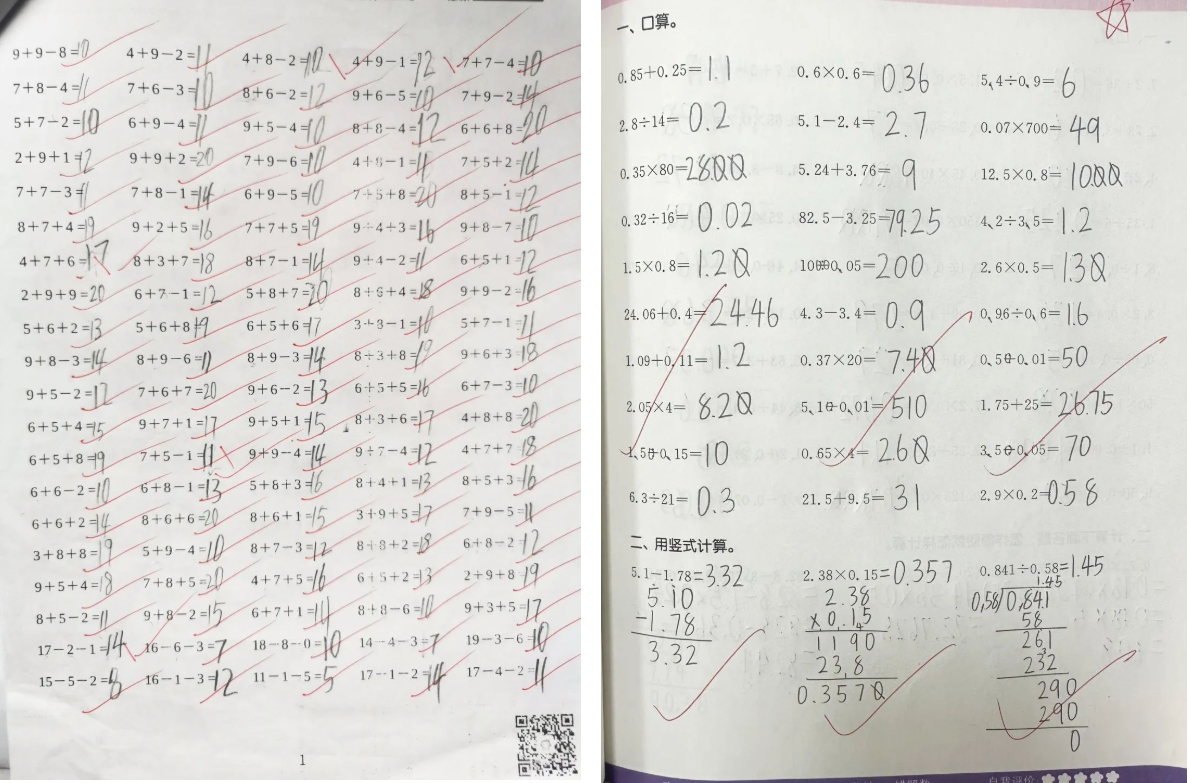 9+9−8=10 4+9−2=11 4+8−2=10 4+9−1=12 7+7−4=10
7+8−4=11 7+6−3=10 8+6−2=12 9+6−5=10 7+9−2=14
5+7−2=10 6+9−4=11 9+5−4=10 8+8−4=12 6+6+8=20
2+9+1=12 9+9+2=20 7+9−6=10 4+8−1=11 7+5+2=14
7+7−3=11 7+8−1=14 6+9−5=10 7+5+8=20 8+5−1=12
8+7+4=19 9+2+5=16 7+7+5=19 9+4+3=16 9+8−7=10
4+7+6=17 8+3+7=18 8+7−1=14 9+4−2=11 6+5+1=12
2+9+9=20 6+7−1=12 5+8+7=20 8+6+4=18 9+9−2=16
5+6+2=13 5+6+8=19 6+5+6=17 3+8−1=10 5+7−1=11
9+8−3=14 8+9−6=11 8+9−3=14 8+3+8=19 9+6+3=18
9+5−2=12 7+6+7=20 9+6−2=13 6+5+5=16 6+7−3=10
6+5+4=15 9+7+1=17 9+5+1=15 8+3+6=17 4+8+8=20
6+5+8=19 7+5−1=11 9+9−4=14 9+7−4=12 4+7+7=18
6+6−2=10 6+8−1=13 5+8+3=16 8+4+1=13 8+5+3=16
6+6+2=14 8+6+6=20 8+6+1=15 3+9+5=17 7+9−5=11
3+8+8=19 5+9−4=10 8+7−3=12 8+8+2=18 6+8−2=12
9+5+4=18 7+8+5=20 4+7+5=16 6+5+2=13 2+9+8=19
8+5−2=11 9+8−2=15 6+7+1=14 8+8−6=10 9+3+5=17
17−2−1=14 16−6−3=7 18−8−0=10 14−4−3=7 19−3−6=10
15−5−2=8 16−1−3=12 11−1−5=5 17−1−2=14 17−4−2=11
1
一、口算。
0.85+0.25=1.1 0.6×0.6=0.36 5.4÷0.9=6
2.8÷14=0.2 5.1−2.4=2.7 0.07×700=49
0.35×80=28.00 5.24+3.76=9 12.5×0.8=10.00
0.32÷16=0.02 82.5−3.25=79.25 4.2÷3.5=1.2
1.5×0.8=1.20 10÷0.05=200 2.6×0.5=1.30
24.06+0.4=24.46 4.3−3.4=0.9 0.96÷0.6=1.6
1.09+0.11=1.2 0.37×20=7.40 0.5÷0.01=50
2.05×4=8.20 5.1÷0.01=510 1.75+25=26.75
1.5÷0.15=10 0.65×4=2.60 3.5÷0.05=70
6.3÷21=0.3 21.5+9.5=31 2.9×0.2=0.58
二、用竖式计算。
5.1−1.78=3.32 2.38×0.15=0.357 0.841÷0.58=1.45
1.45
5.10 2.38 0.58/0.841
−1.78 ×0.15 58
3.32 1190 261
23.8 232
0.3570 290
290
0